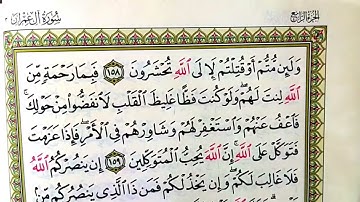 سُورَةُ آلِ عِمْرَانَ الجزء الرابع
وَلَئِن مُّتُّمْ أَوْ قُتِلْتُمْ لَإِلَى ٱللَّهِ تُحْشَرُونَ ١٥٨ فَبِمَا رَحْمَةٍ مِّنَ
ٱللَّهِ لِنتَ لَهُمْ وَلَوْ كُنتَ فَظًّا غَلِيظَ ٱلْقَلْبِ لَٱنفَضُّوا۟ مِنْ حَوْلِكَ
فَٱعْفُ عَنْهُمْ وَٱسْتَغْفِرْ لَهُمْ وَشَاوِرْهُمْ فِى ٱلْأَمْرِ فَإِذَا عَزَمْتَ
فَتَوَكَّلْ عَلَى ٱللَّهِ إِنَّ ٱللَّهَ يُحِبُّ ٱلْمُتَوَكِّلِينَ ١٥٩ إِن يَنصُرْكُمُ ٱللَّهُ
فَلَا غَالِبَ لَكُمْ وَإِن يَخْذُلْكُمْ فَمَن ذَا ٱلَّذِى يَنصُرُكُم مِّنۢ